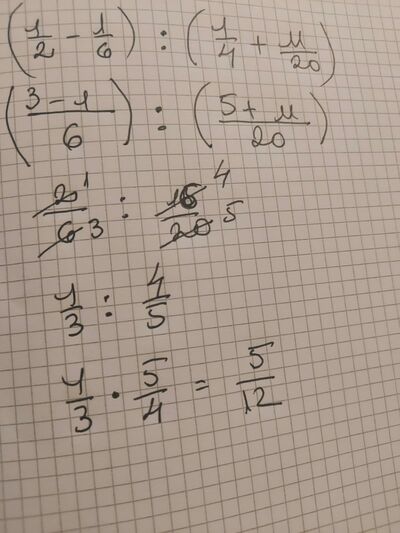 (1/2 - 1/6) : (1/4 + 11/20)
(3 - 1/6) : (5 + 11/20)
2 1/6 3 : 16 4/20 5
1/3 : 4/5
1/3 · 5/4 = 5/12